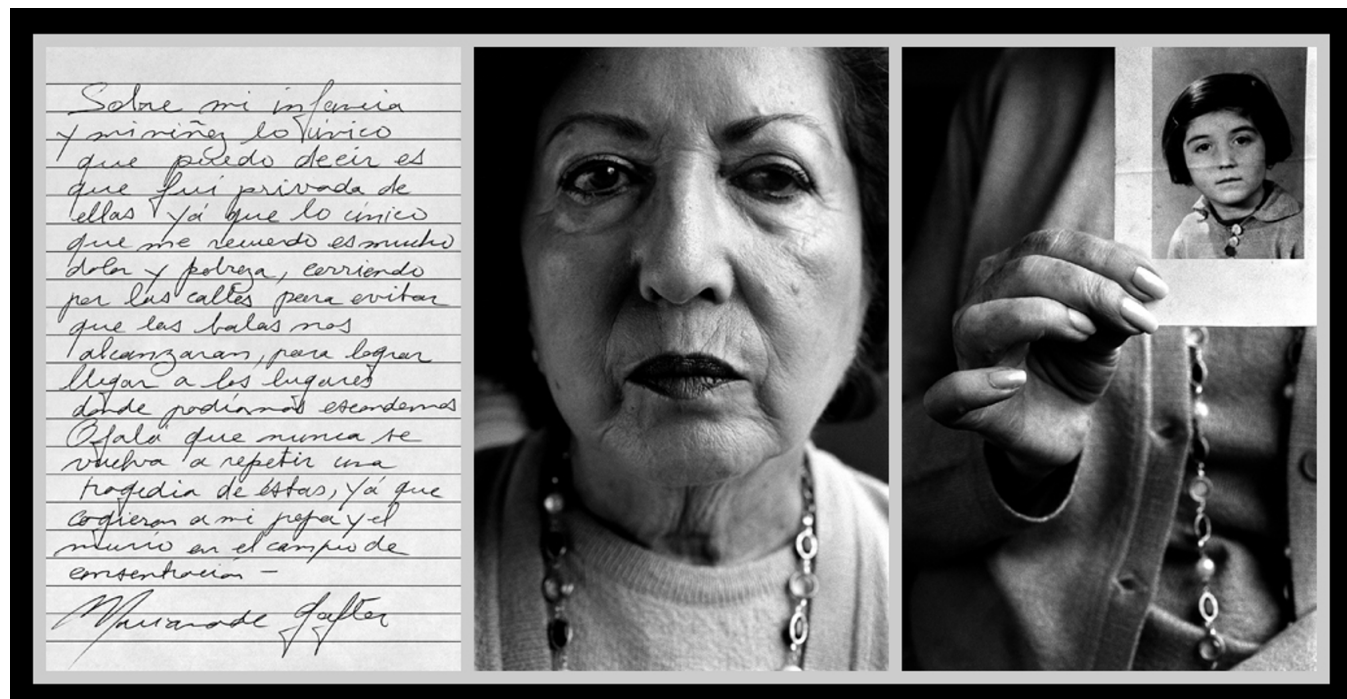 Sobre mi infancia
y mi niñez lo único
que puedo decir es
que fui privada de
ellas yá que lo único
que me recuerdo es mucho
dolor y pobreza, corriendo
por las calles para evitar
que las balas nos
alcanzaran, para lograr
llegar a los lugares
donde podíamos escondernos
Ojalá que nunca se
vuelva a repetir una
tragedia de éstas, yá que
cogieron a mi papa y el
murio en el campo de
consentracion –
de